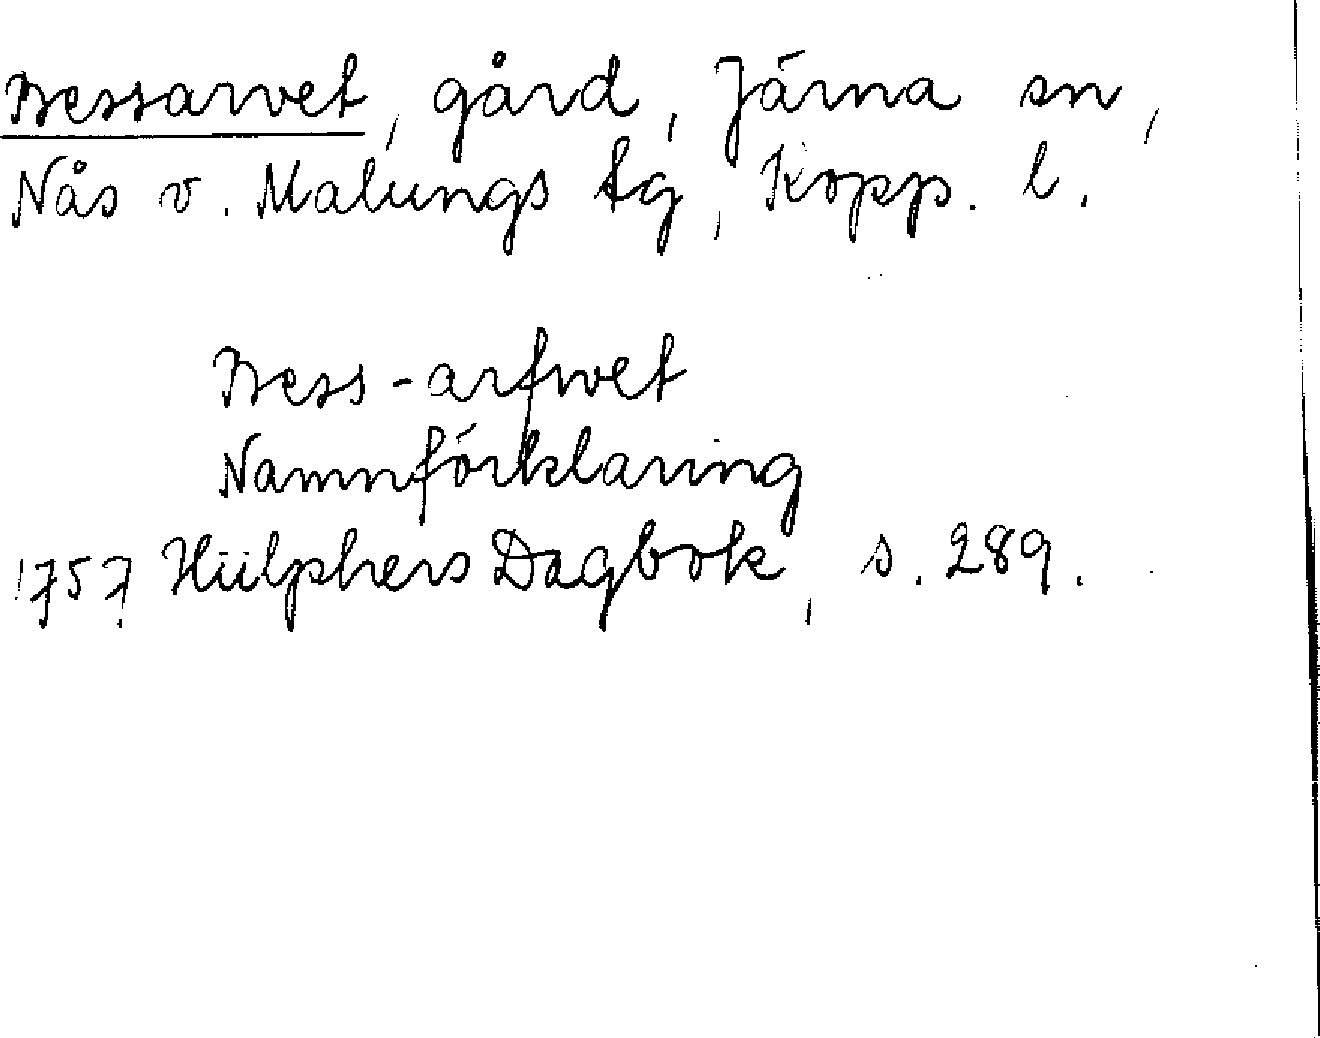 Bessarvet, gård, Järna sn,
Nås o. Malungs tg, Kopp. l.
Bess-arfwet
Namnförklaring
1757 Hülphers Dagbok, s. 289.